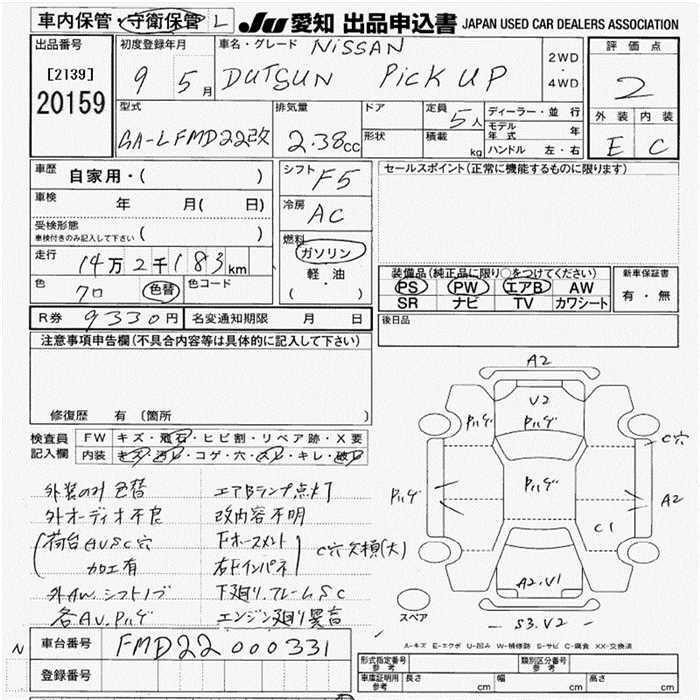 車内保管・守衛保管 L JU 愛知 出品申込書 JAPAN USED CAR DEALERS ASSOCIATION
出品番号 初度登録年月 車名・グレード NiSSAN 評価点
[2139] 9 5月 DUTSUN PiCK UP 2WD・4WD 2
20159
型式 排気量 ドア 定員 5人 ディーラー・並行 外装 内装
GA-LFMD22改 2.38cc 形状 積載 kg モデル年式 年 E C
ハンドル 左・右
車歴 自家用・( ) シフト F5 セールスポイント(正常に機能するものに限ります)
車検 年 月( 日) 冷房 AC
受検形態 ( )
車検付きのみ記入して下さい
走行 14万2千183km 燃料 ガソリン
軽油
( ・ )
装備品(純正品に限り○をつけてください) 新車保証書
色 色替 色コード PS PW エアB AW 有・無
SR ナビ TV カワシート
R券 9330円 名変通知期限 月 日 後日品
注意事項申告欄(不具合内容等は具体的に記入して下さい)
修復歴 有 (箇所 )
検査員 FW キズ・飛石・ヒビ割・リペア跡・X要
記入欄 内装 キズ・汚レ・コゲ・穴・スレ・キレ・破レ
A2
V2
Pハゲ Pハゲ
C穴
Pハゲ Pハゲ A2
C1
A2.V1
スペア S3.V2
外装のみ色替 エアBランプ点灯
外オーディオ不良 改内容不明
荷台AUSC穴 下ホースメント C穴欠損(大)
加工有 右下インパネ
外AW.シフトノブ 下廻り.フレームSC
各AU.Pハゲ エンジン廻り異音
A-キズ E-エクボ U-凹み W-補修跡 S-サビ C-腐食 XX-交換済
N 車台番号 FMD22 000331
登録番号
型式指定番号 参考 類別区分番号 参考
車庫証明用 参考 長さ cm 幅 cm 高さ cm